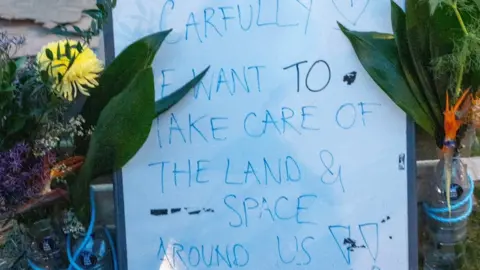 CARFULLY
E WANT TO
TAKE CARE OF
THE LAND &
SPACE
AROUND US